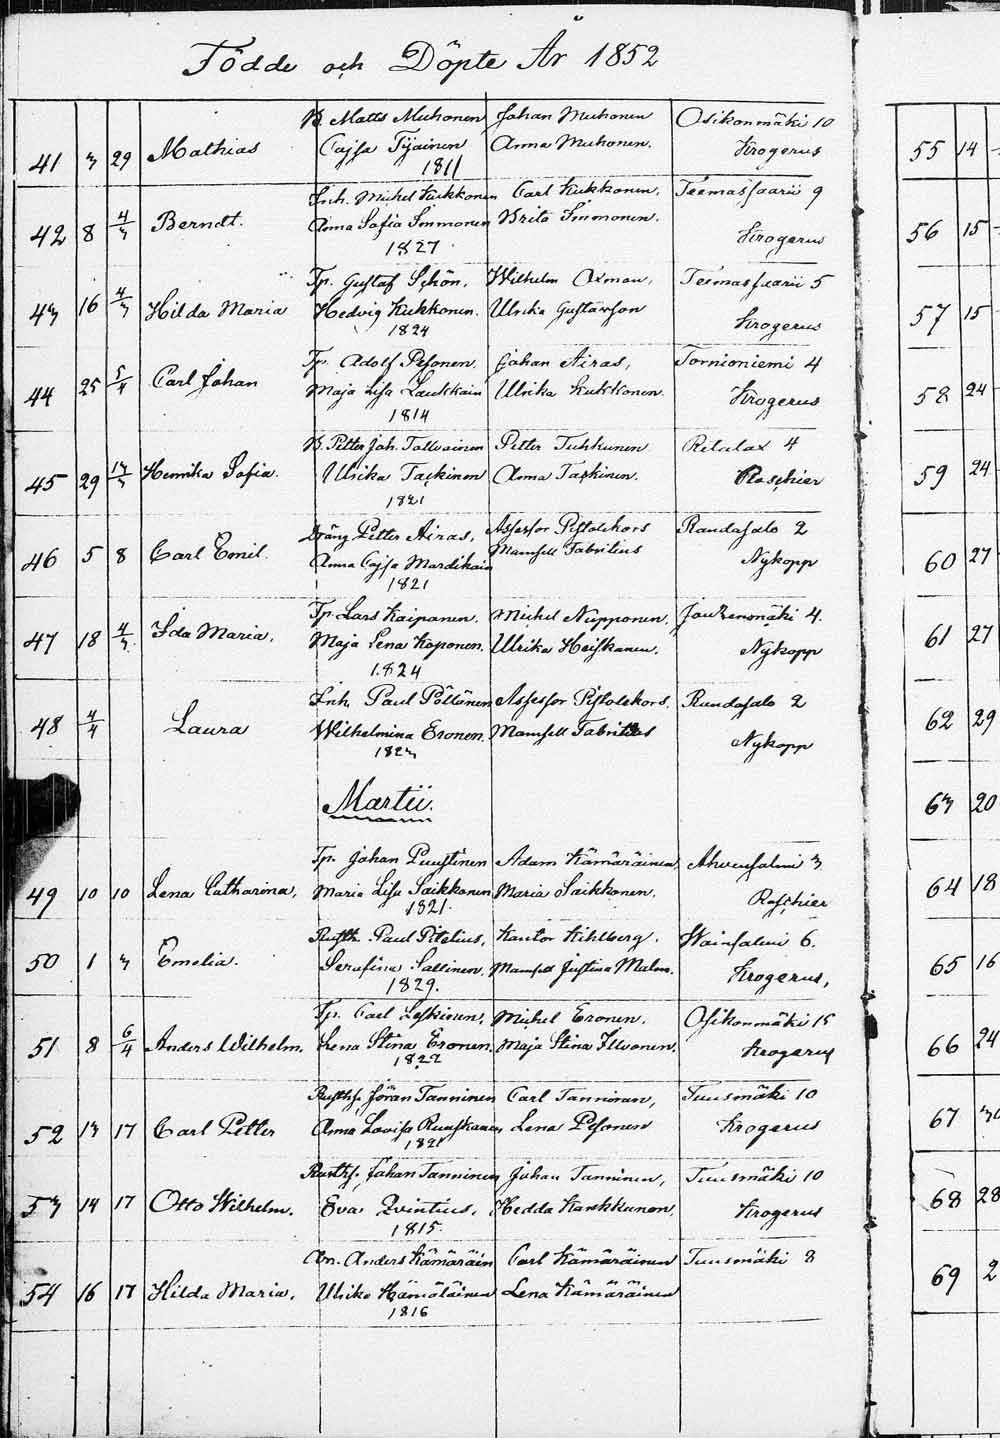 Födde och Döpte År 1852
B. Matts Muhonen Johan Muhonen Osikonmäki 10
41 3 29 Mathias Cajsa Tijainen Anna Muhonen. Krogerus
1811
Inh. Michel Kukkonen Carl Kukkonen. Teemassaarii 9
42 8 4/3 Berndt. Anna Sofia Immonen Brita Immonen.
1827. Krogerus
Tp. Gustaf Schön. Wilhelm Oxman, Teemassaarii 5
43 16 4/3 Hilda Maria Hedvig Kukkonen. Ulrika Gustavson Krogerus
1824
Tp. Adolf Pesonen. Johan Airas, Tornioniemi 4
44 25 5/4 Carl Johan Maja Lisa Laukkain Ulrika Kukkonen. Krogerus
1814
B. Petter Joh. Tolvainen Petter Tuhkunen Retulax 4
45 29 13/3 Henrika Sofia. Ulrika Taskinen Anna Taskinen. Roschier
1821
Dräng Petter Airas, Assessor Pistolekors Randasalo 2
46 5 8 Carl Emil. Anna Cajsa Mardikain Mamsell Fabritius Nykopp
1821
Tp. Lars Kaipanen. Michel Nupponen. 4.
47 18 4/3 Ida Maria. Maja Lena Koponen. Ulrika Heiskanen. Nykopp
1824
Inh. Paul Pöllänen Assessor Pistolekors. Randasalo 2
48 4/4 Laura Wilhelmina Eronen. Mamsell Fabritius Nykopp
1823
Martii.
Tp. Johan Puustinen Adam Kämäräinen, Ahvensalmi 3
49 10 10 Lena Catharina, Maria Lisa Saikkonen Maria Saikkonen. Roschier
1821.
Rusth. Paul Pitelius, Kantor Kihlberg. Wainsalmi 6.
50 1 3 Emelia. Serafina Sallinen. Mamsell Justina Malm. Krogerus,
1829.
Tp. Carl Leskinen. Michel Eronen. Osikonmäki 15
51 8 6/4 Anders Wilhelm. Lena Stina Eronen. Maja Stina Ilvonen. Krogerus
1822
Rusth. Jöran Tanninen Carl Tanninen, Tuusmäki 10
52 13 17 Carl Petter Anna Lovisa Ruuskanen Lena Pesonen Krogerus
1821
Rusth. Johan Tanninen Johan Tanninen, Tuusmäki 10
53 14 17 Otto Wilhelm. Eva Qvintius, Hedda Kankkunen. Krogerus
1815.
Anders Kämäräin Carl Kämäräinen Tuusmäki 8
54 16 17 Hilda Maria, Ulrika Hämäläinen Lena Kämäräinen
1816
55 14
56 15
57 15
58 24
59 24
60 27
61 27
62 29
63 20
64 18
65 16
66 24
67 30
68 28
69 2